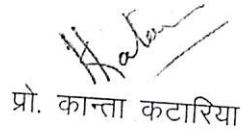 प्रो. कान्ता कटारिया